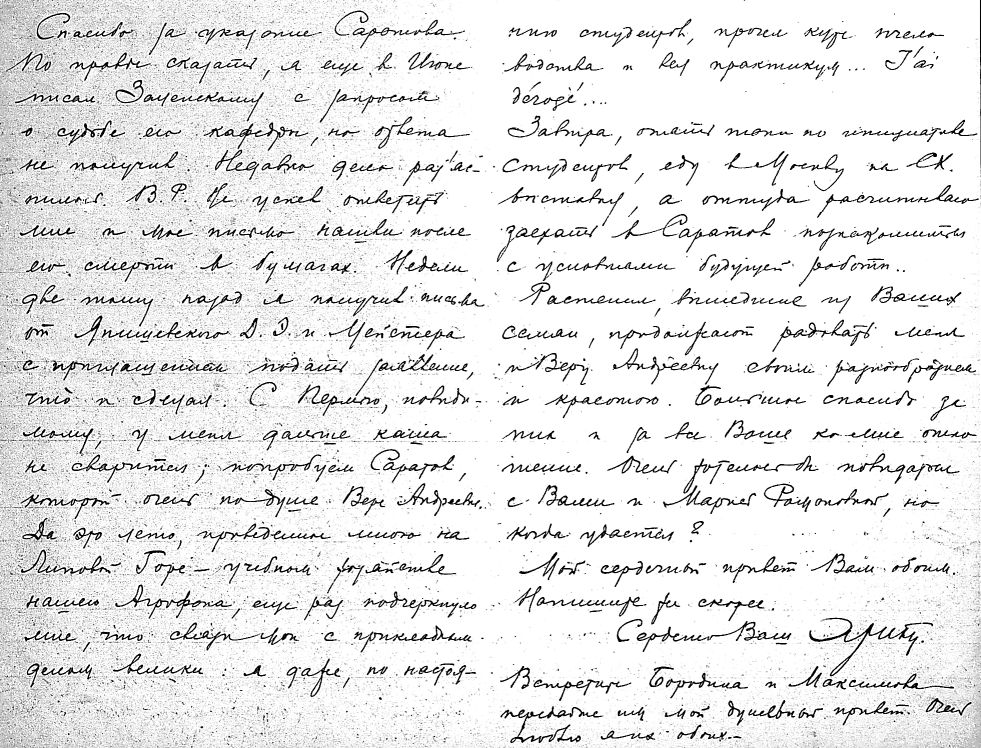 Спасибо за указание Саратова.
По правде сказать, я еще в Июне
писал Заленскому с запросом
о судьбе его кафедры, но ответа
не получил. Недавно дело разъяс-
нилось. В.Р. не успел ответить
мне и мое письмо нашли после
его смерти в бумагах. Недели
две тому назад я получил письма
от Япишевского Д.Э. и Мейстера
с приглашением подать заявление,
что и сделал. С Пермью, повиди-
мому, у меня дальше каша
не сварится; попробуем Саратов,
который очень по душе Вере Андреевне.
Да это лето, проведенное много на
Липовой Горе – учебном хозяйстве
нашего Агрофака, еще раз подчеркнуло
мне, что связи мои с прикладным
делом велики: я даже, по настоя-
нию студентов, прочел курс пчело
водства и вел практикум... J'ai
dérogé....
Завтра, опять таки по инициативе
студентов, еду в Москву на СХ.
выставку, а оттуда расчитываю
заехать в Саратов познакомиться
с условиями будущей работы..
Растения, вышедшие из Ваших
семян, продолжают радовать меня
и Веру Андреевну своим разнообразием
и красотою. Большое спасибо за
них и за все Ваше ко мне отно
шение. Очень хотелось бы повидаться
с Вами и Марией, но
когда удастся?
Мой сердечный привет Вам обоим.
Напишите же скорее.
Сердечно Ваш
Встретите Бородина и Максимова
передайте им мой душевный привет. Очень
люблю я их обоих.–